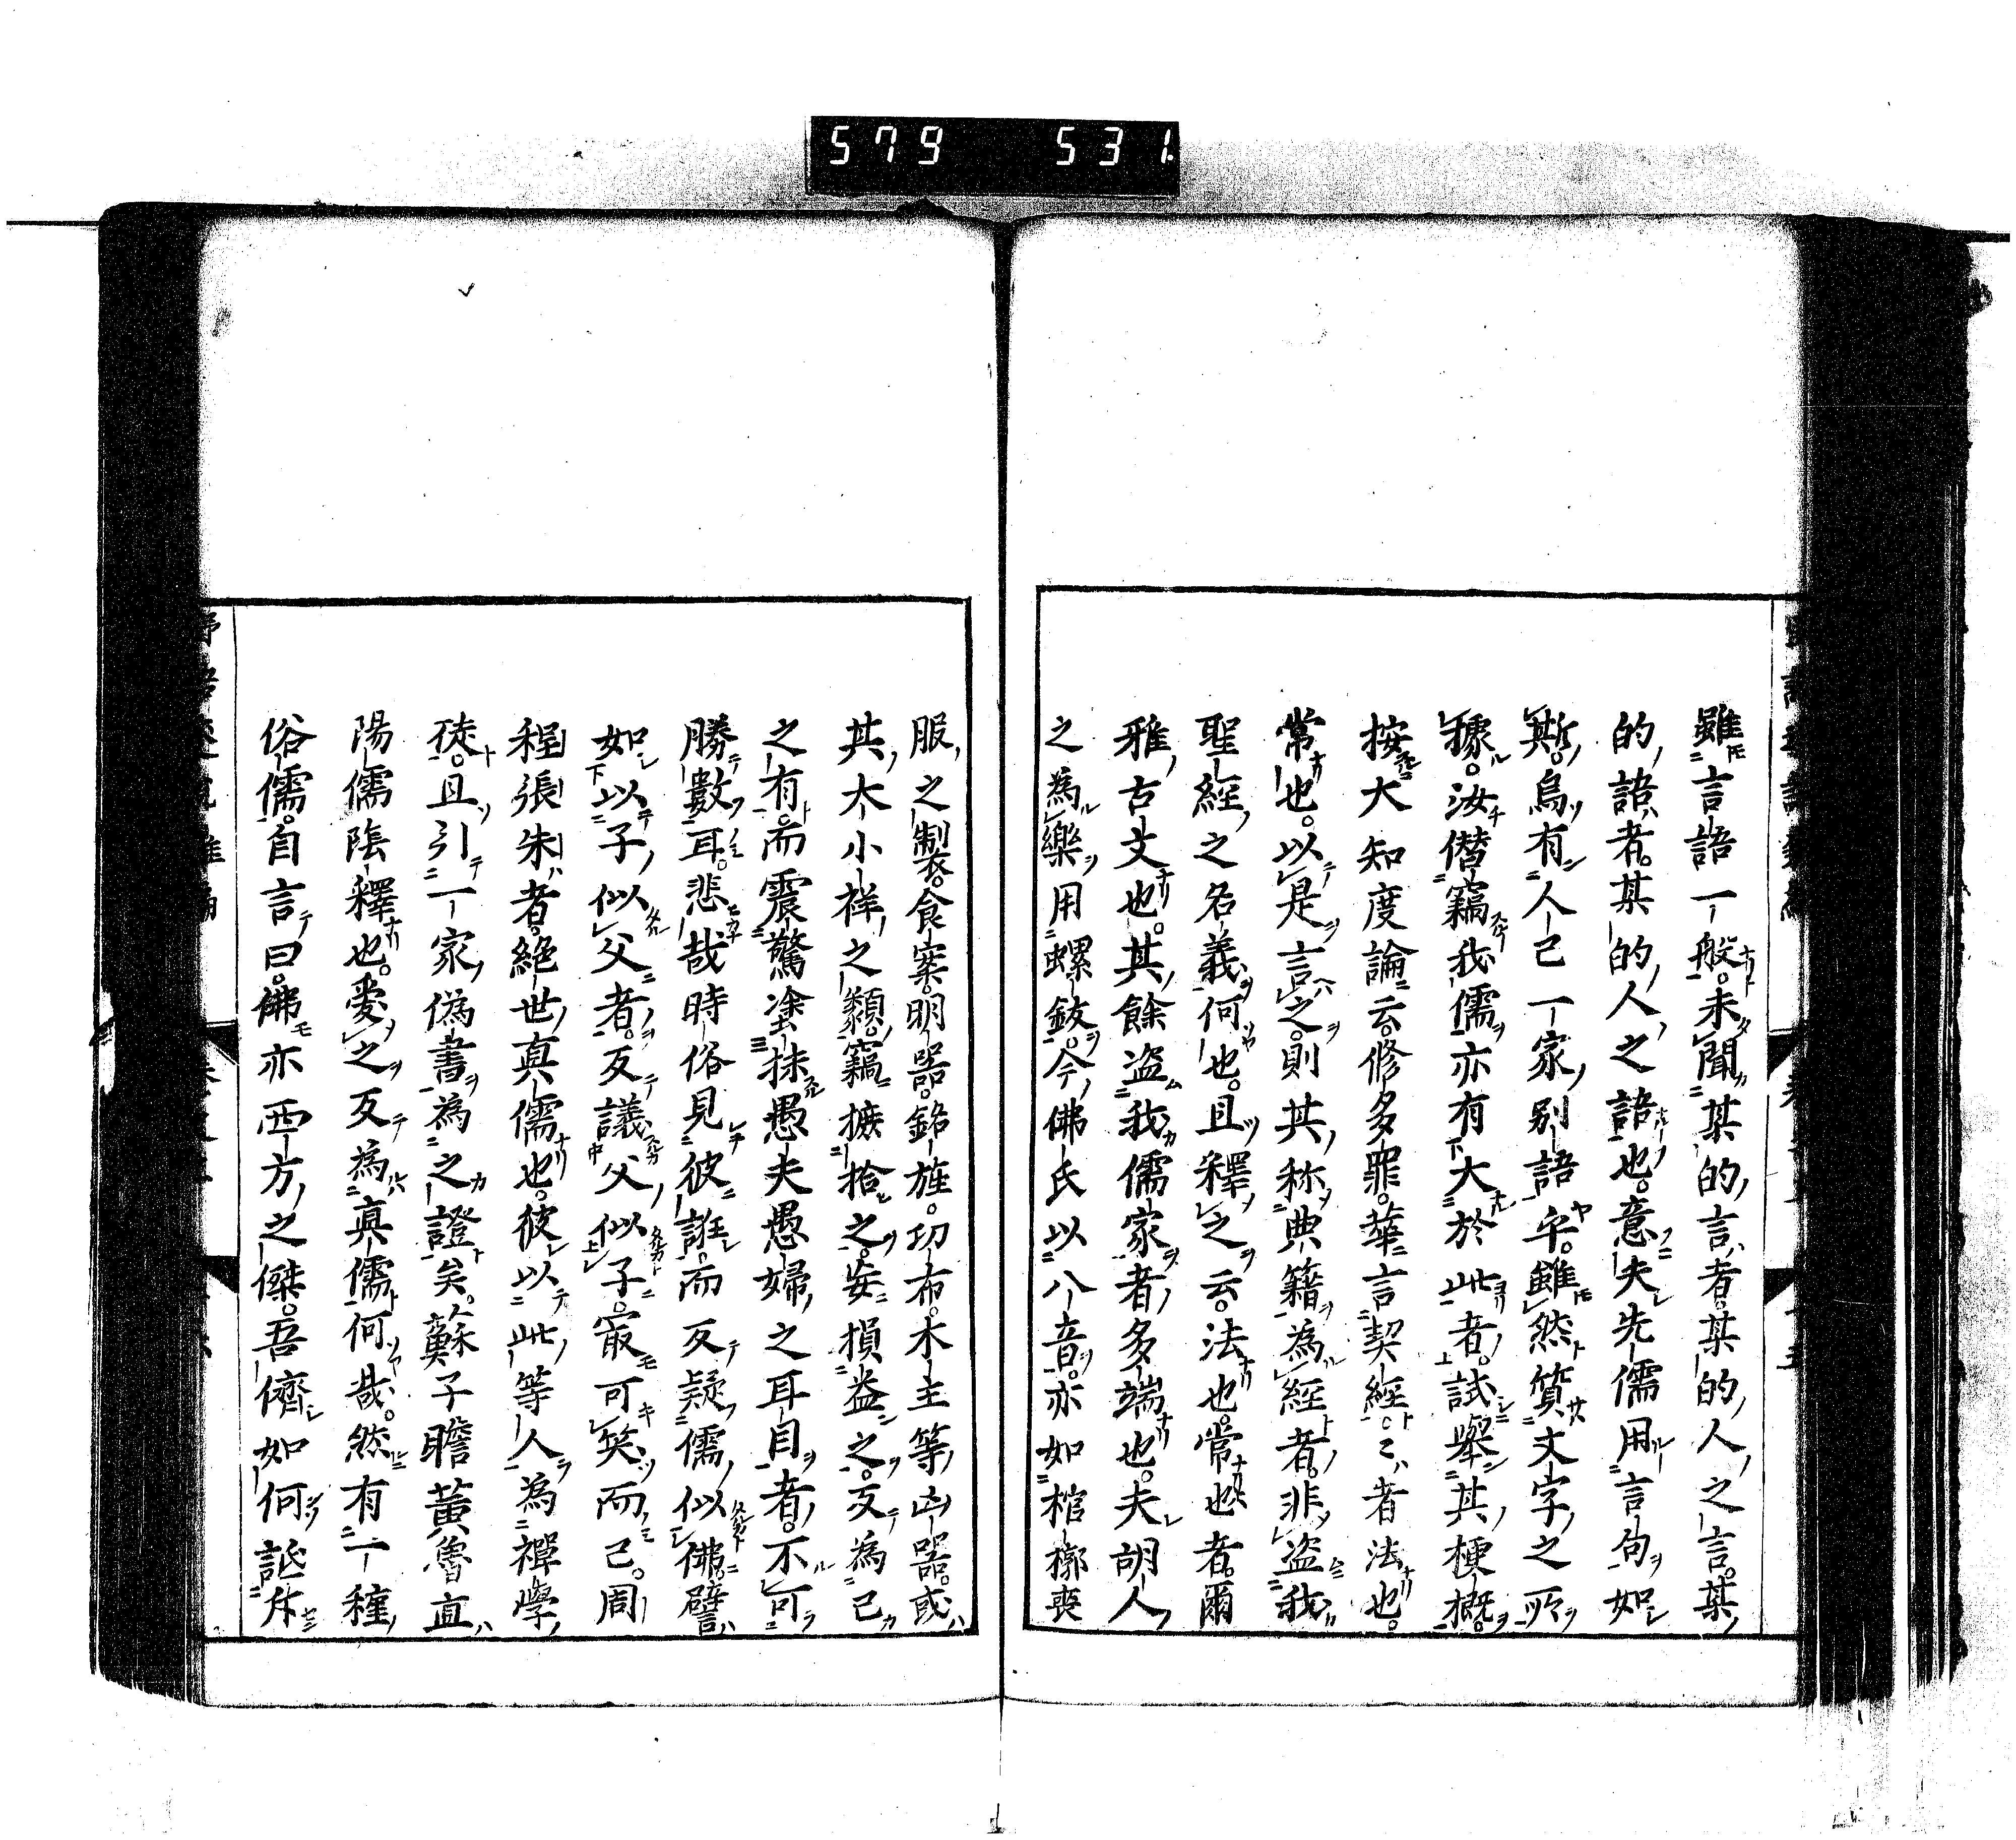 579 531
雖言語一般。未聞某的言者。某的人之言。某
的語者。某的人之語也。意夫先儒用言句如
斯。烏有人己一家別語乎。雖然質文字之所
據。汝僭竊我儒亦有大於此者。試舉其梗概。
按大知度論云。修多羅。華言契經。〻者法也。
常也。以是言之。則其称典籍為經者。非盗我
聖經之名義何也。且釋之云。法也常也者。爾
雅古文也。其餘盗我儒家者多端也。夫胡人
之為樂用螺鈸。今佛氏以八音。亦如棺槨喪
服之製。食案。明器。銘旌。功布。木主等凶器。或
其大小祥之類。竊摭拾之。妄損益之。反為己
之有。而震驚塗抹愚夫愚婦之耳目者。不可
勝數耳。悲哉時俗見彼誑。而反疑儒似佛。譬
如以子似父者。反議父似子。寂可笑而已。周
程張朱者。絶世真儒也。彼以此等人為禪學
徒。且引一家偽書為之證矣。蘇子瞻黄魯直
陽儒陰釋也。愛之反為真儒何哉。然有一種
俗儒。自言曰。佛亦西方之傑。吾儕如何詆斥